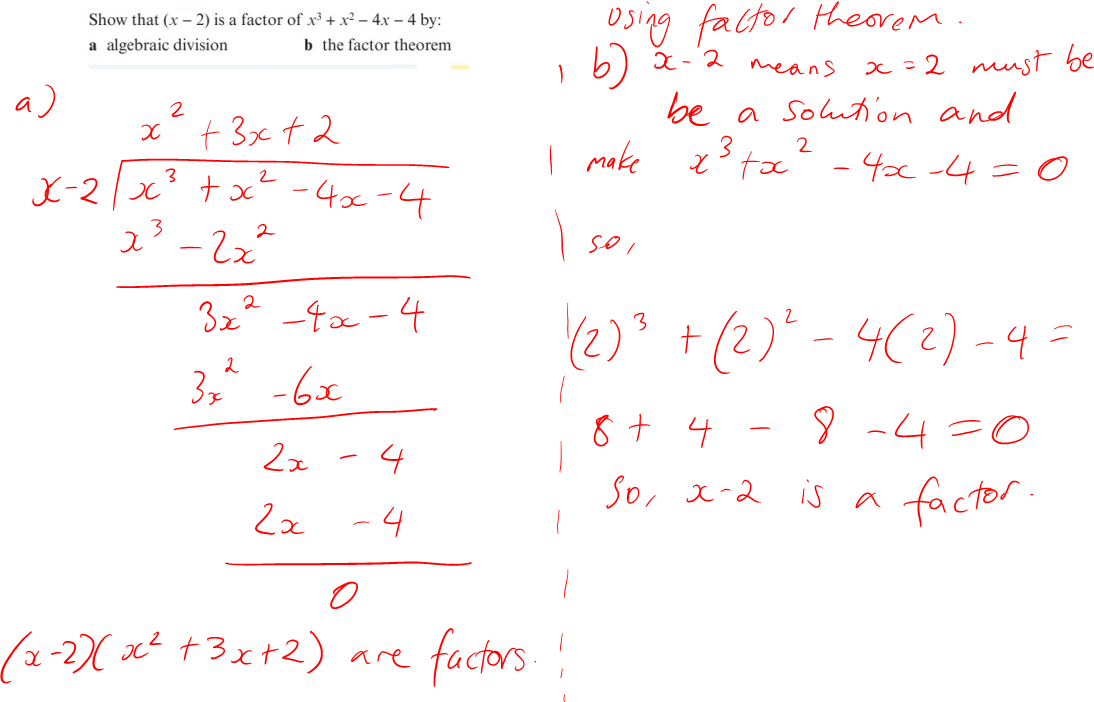 Show that (x – 2) is a factor of x³ + x² – 4x – 4 by:
a algebraic division b the factor theorem
a)
x² + 3x + 2
x-2 x³ + x² - 4x - 4
x³ - 2x²
3x² - 4x - 4
3x² - 6x
2x - 4
2x - 4
0
(x-2)(x² + 3x + 2) are factors.
Using factor theorem.
b) x-2 means x = 2 must be
be a solution and
make x³ + x² - 4x - 4 = 0
so,
(2)³ + (2)² - 4(2) - 4 =
8 + 4 - 8 - 4 = 0
So, x-2 is a factor.